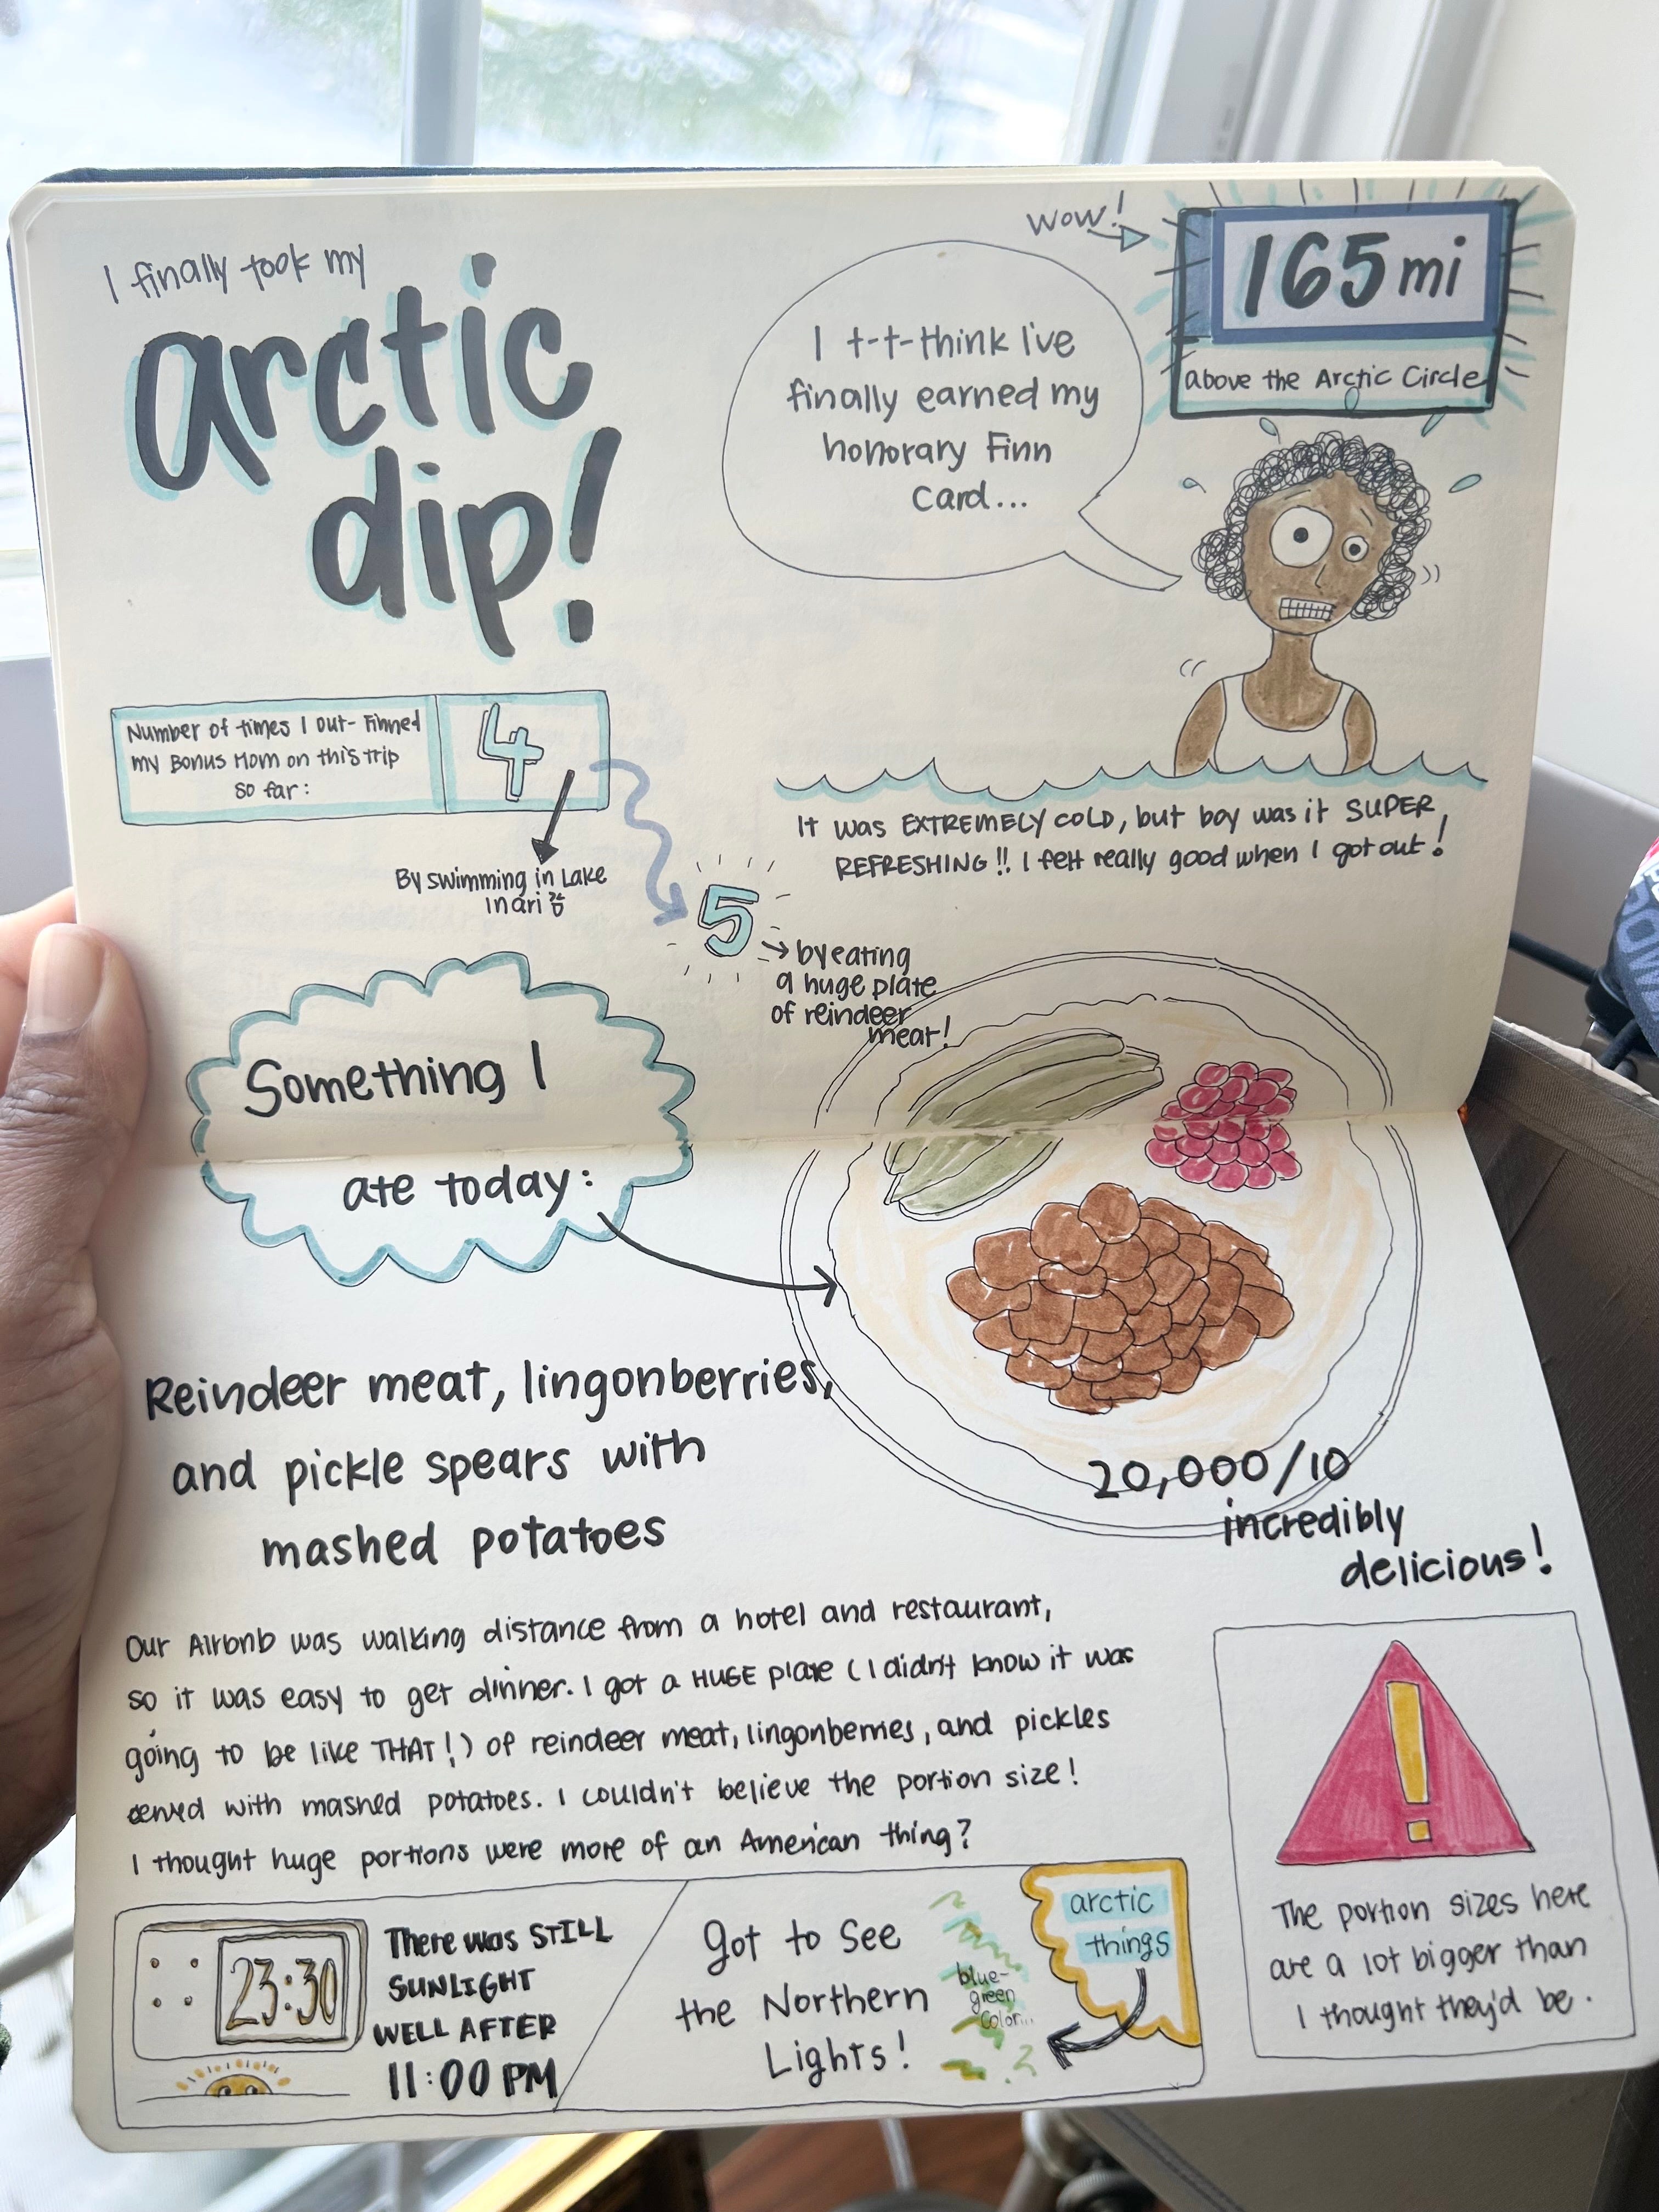 I finally took my
arctic
dip!
WOW!
165 mi
above the Arctic Circle
I t-t-think I've
finally earned my
honorary Finn
Card...
Number of times I out-Finned
my Bonus Mom on this trip
so far:
4
By swimming in Lake
Inari
5
by eating
a huge plate
of reindeer
meat!
It was EXTREMELY COLD, but boy was it SUPER
REFRESHING!! I felt really good when I got out!
Something I
ate today:
Reindeer meat, lingonberries,
and pickle spears with
mashed potatoes
20,000/10
incredibly
delicious!
Our Airbnb was walking distance from a hotel and restaurant,
so it was easy to get dinner. I got a HUGE plate (I didn't know it was
going to be like THAT!) of reindeer meat, lingonberries, and pickles
served with mashed potatoes. I couldn't believe the portion size!
I thought huge portions were more of an American thing?
The portion sizes here
are a lot bigger than
I thought they'd be.
23:30
There was STILL
SUNLIGHT
WELL AFTER
11:00 PM
Got to see
the Northern
Lights!
blue-
green
color...
arctic
things